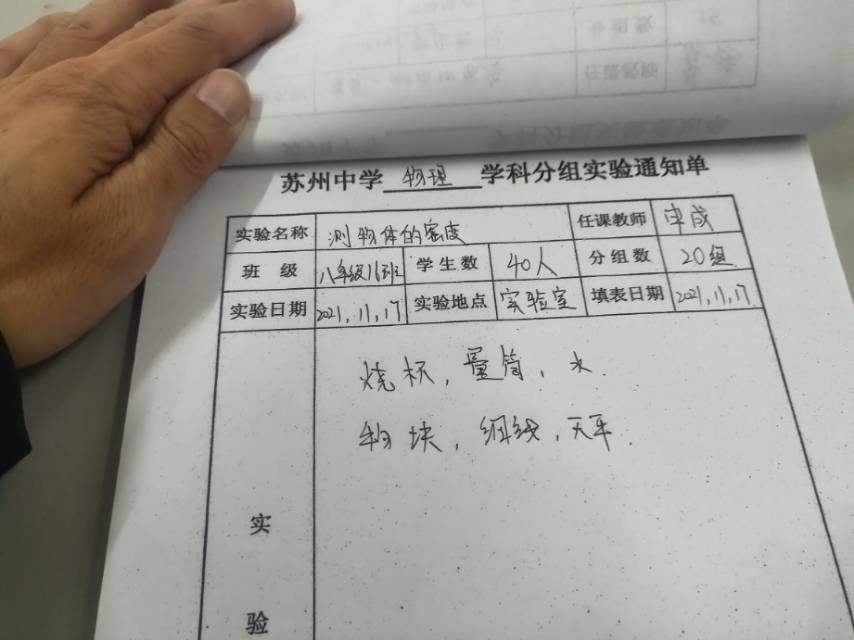 苏州中学 物理 学科分组实验通知单
实验名称 测物体的密度 任课教师 成
班级 八年级16班 学生数 40人 分组数 20组
实验日期 2021,11,17 实验地点 实验室 填表日期 2021,11,17
烧杯,量筒,水.
物块,细线,天平.
实
验